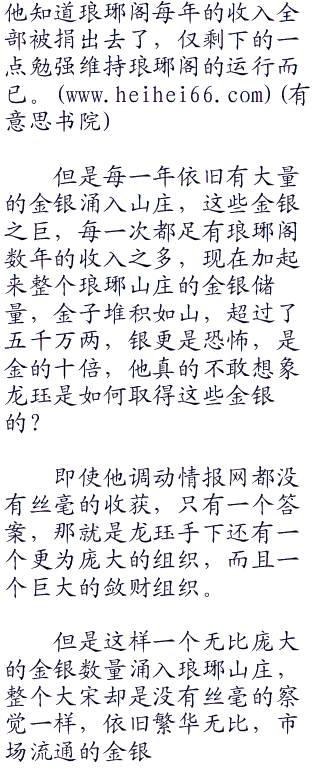 他知道琅琊阁每年的收入全
部被捐出去了，仅剩下的一
点勉强维持琅琊阁的运行而
已。(www.heihei66.com)(有
意思书院)
但是每一年依旧有大量
的金银涌入山庄，这些金银
之巨，每一次都足有琅琊阁
数年的收入之多，现在加起
来整个琅琊山庄的金银储
量，金子堆积如山，超过了
五千万两，银更是恐怖，是
金的十倍，他真的不敢想象
龙珏是如何取得这些金银
的？
即使他调动情报网都没
有丝毫的收获，只有一个答
案，那就是龙珏手下还有一
个更为庞大的组织，而且一
个巨大的敛财组织。
但是这样一个无比庞大
的金银数量涌入琅琊山庄，
整个大宋却是没有丝毫的察
觉一样，依旧繁华无比，市
场流通的金银